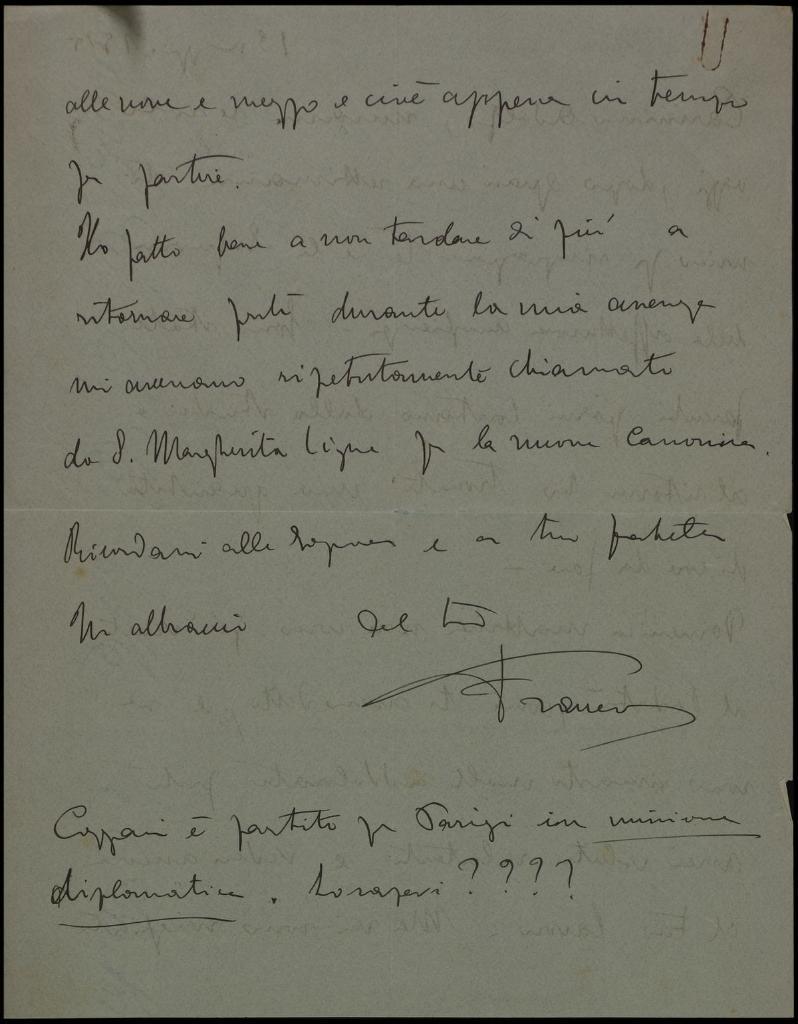 alle nove e mezzo e cioè appena in tempo
per partire.
Ho fatto bene a non tardare di più a
ritornare perchè durante la mia assenza
mi avevano ripetutamente chiamato
da S. Margherita Ligure per la nuova Canonica.
Ricordami alle Signore e a tuo fratello
Un abbraccio del tuo
Franco
Cozzani è partito per Parigi in missione
diplomatica. Lo sapevi ????